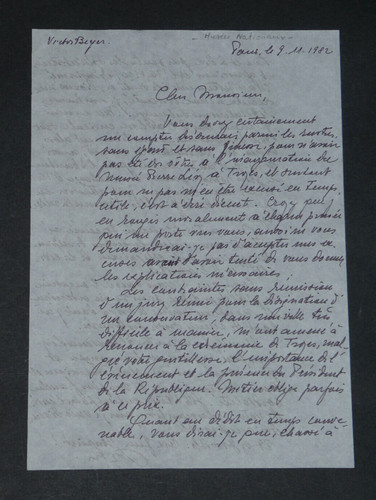 Victor Beyer
- Musées Nationaux -
Paris, le 9.11.1982
Cher Monsieur,
Vous devez certainement
me compter désormais parmi les rustres,
sans esprit et sans finesse, pour n'avoir
pas été des vôtres à l'inauguration du
Musée Pierre Lévy à Troyes, et surtout
pour ne pas m'en être excusé en temps
utile, c'est à dire décent. Croyez que j'
en rougis moralement à chaque pensée
qui me porte vers vous, aussi ne vous
demanderai-je pas d'accepter mes ex-
cuses avant d'avoir tenté de vous donner
les explications nécessaires.
Les contraintes sans rémission
d'un jury réuni pour la désignation d'
un conservateur, dans une ville très
difficile à manier, m'ont amené à
renoncer à la cérémonie de Troyes, mal-
gré votre gentillesse, l'importance de l'
événement et la présence du Président
de la République. Métier oblige parfois
à ce prix.
Quant au dédit en temps conve-
nable, vous dirai-je que, chassé à